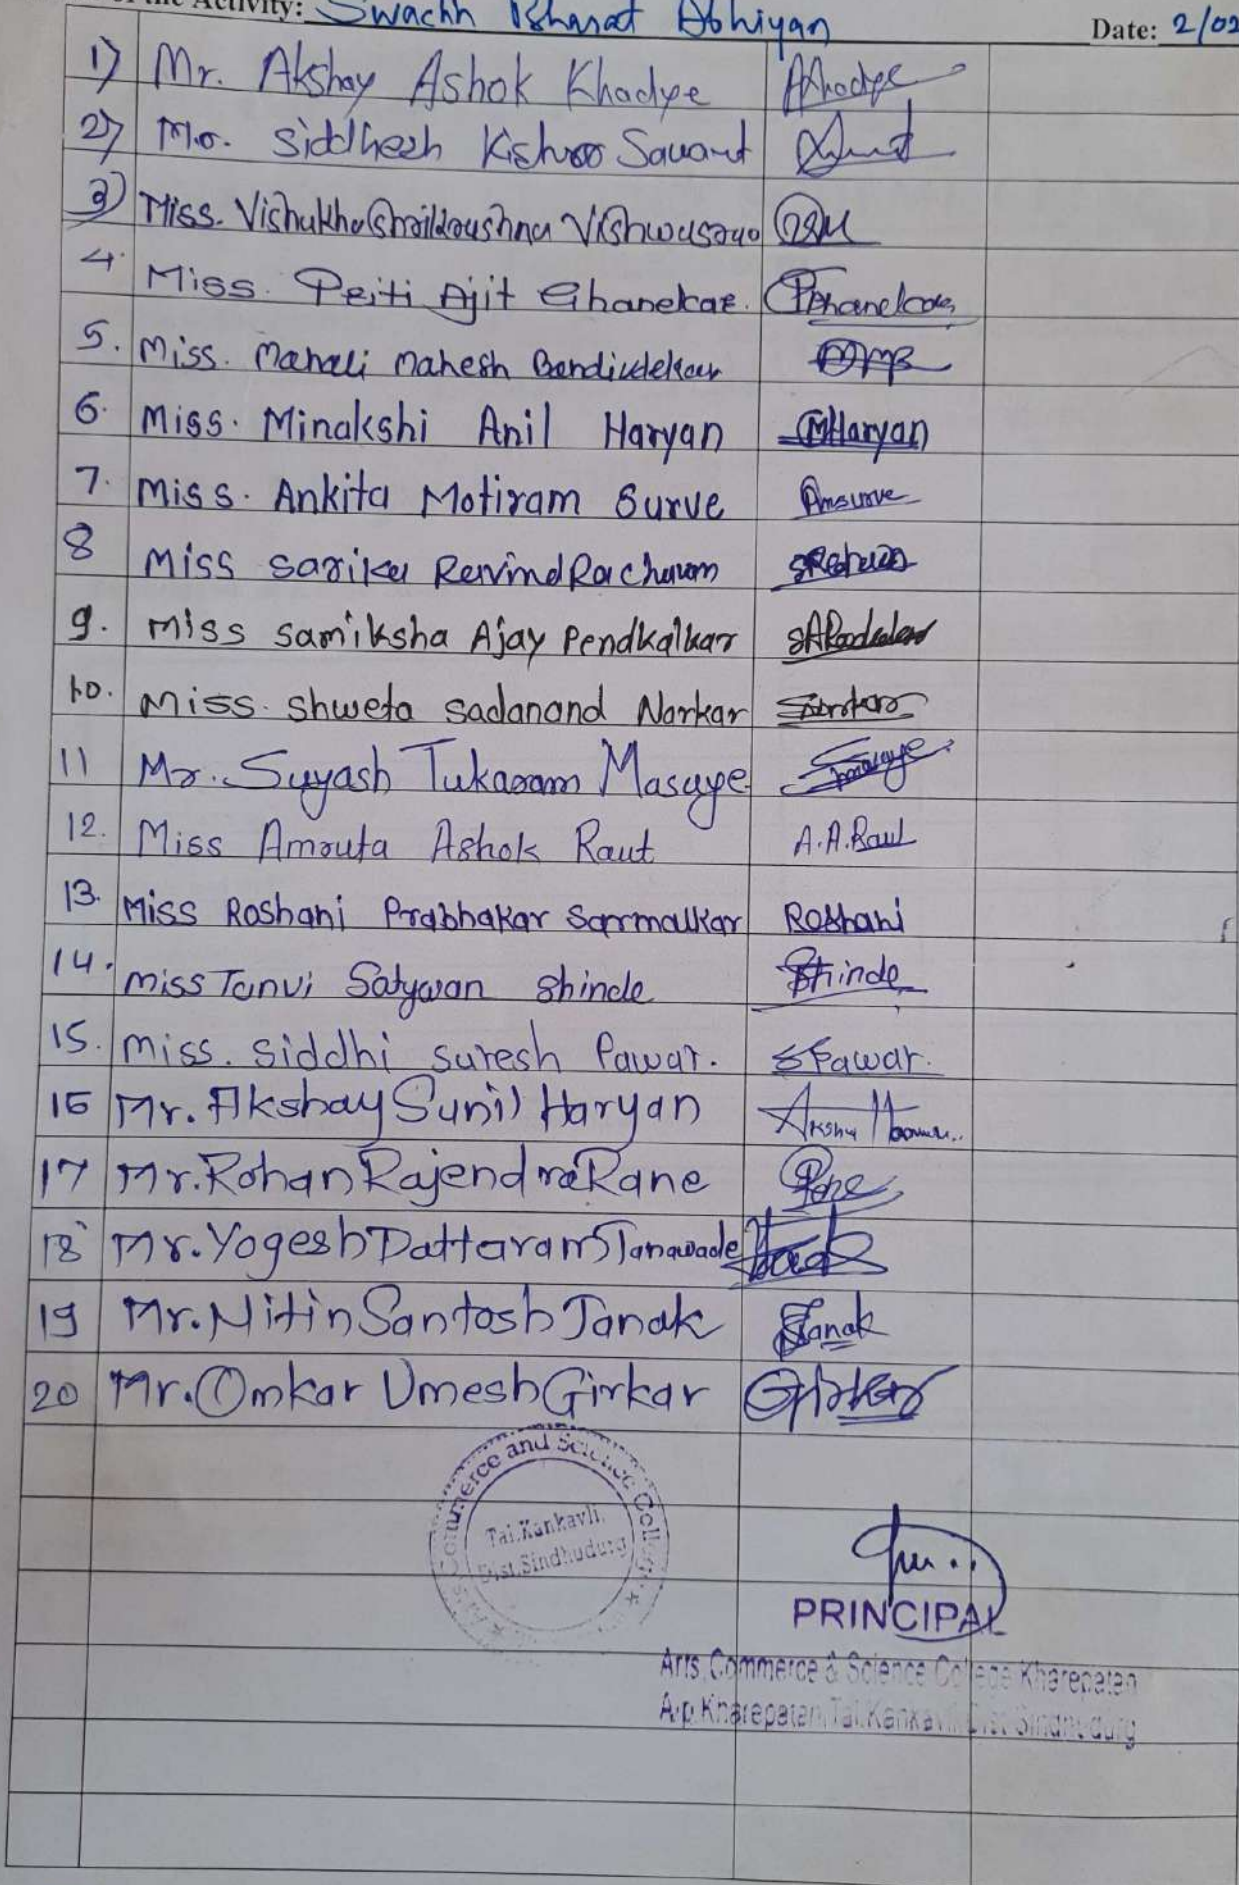 the Activity: Swachh Bharat Abhiyan Date: 2/02
1) Mr. Akshay Ashok Khadye AKhadye
2) Mr. Siddhesh Kishor Sawant
3) Miss. Vishakha Shrikrushna Vishwasrao
4. Miss. Priti Ajit Ghanekar. PGhanekar
5. Miss. Manali Mahesh Bandivdekar MMB
6. Miss. Minakshi Anil Haryan MHaryan
7. Miss. Ankita Motiram Surve Amsurve
8 Miss Sarika Ravind Racham
9. Miss Samiksha Ajay Pendkalkar
10. Miss. Shweta Sadanand Narkar
11 Mr. Suyash Tukaram Masaye Smasaye
12. Miss Amruta Ashok Raut A.A.Raut
13. Miss Roshani Prabhakar Sarmalkar Roshani
14. Miss Tanvi Satywan Shinde Shinde
15. Miss. Siddhi Suresh Pawar. SPawar.
16 Mr. Akshay Sunil Haryan
17 Mr. Rohan Rajendra Rane Rane
18 Mr. Yogesh Dattaram Tanawade
19 Mr. Nitin Santosh Janak Janak
20 Mr. Omkar Umesh Girkar Girkar
Arts, Commerce and Science College
Tal.Kankavli,
Dist.Sindhudurg
PRINCIPAL
Arts, Commerce & Science College Kharepatan
A.p. Kharepatan, Tal.Kankavli, Dist. Sindhudurg